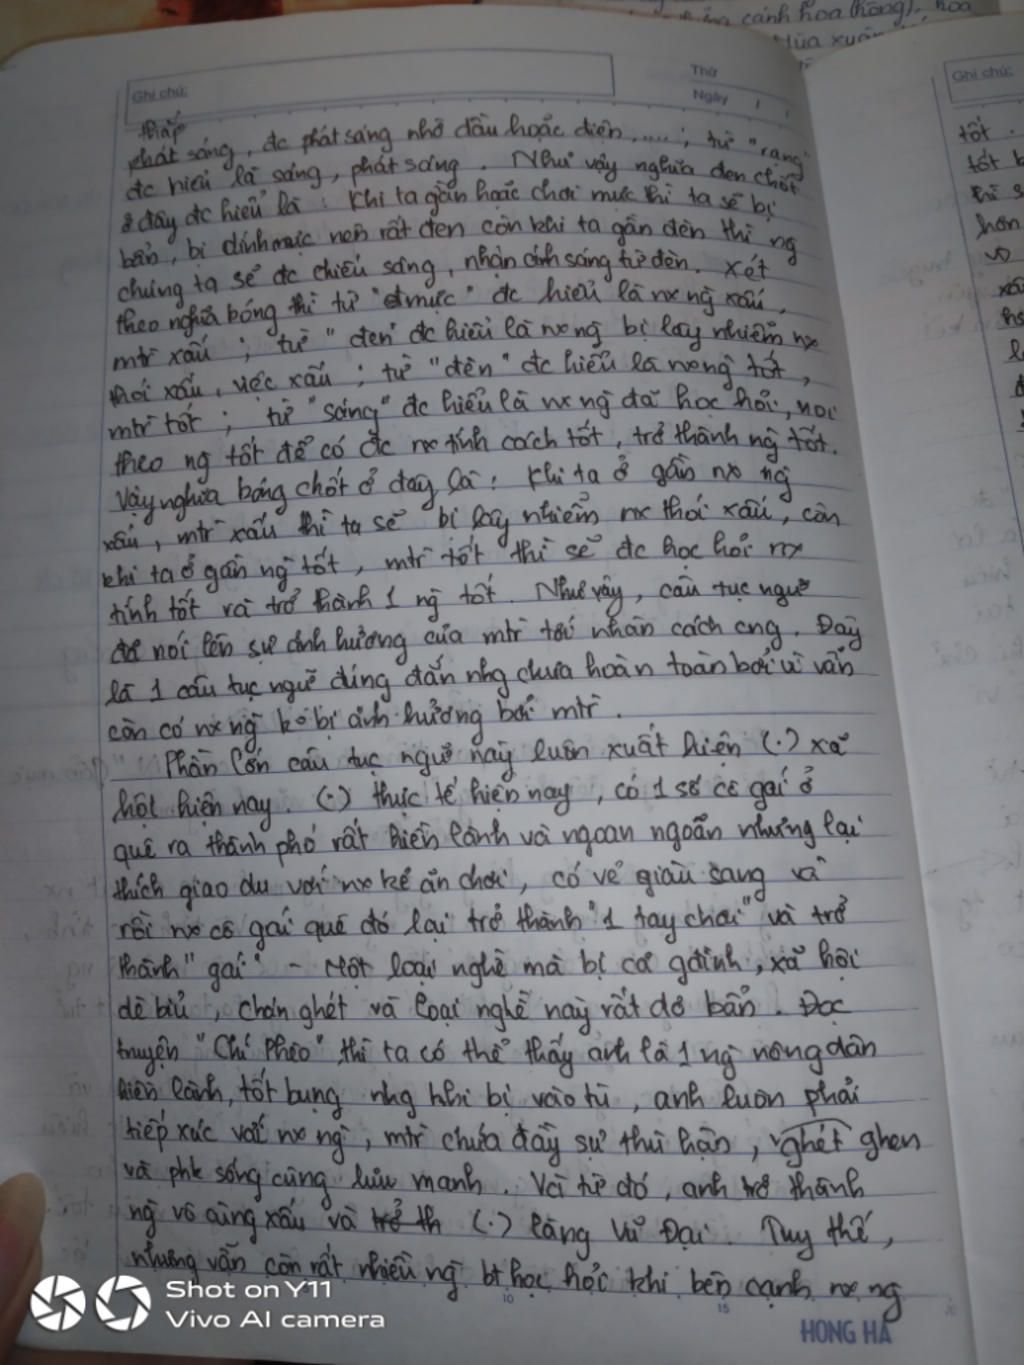 cánh hoa (hồng), hoa
Mùa xuân
Ghi chú:
Thứ
Ngày / /
thắp
phát sáng, đc phát sáng nhờ dầu hoặc điện,....; từ "rạng"
đc hiểu là sáng, phát sáng. Như vậy nghĩa đen chốt
ở đây đc hiểu là: Khi ta gần hoặc chơi mực thì ta sẽ bị
bẩn, bị dính mực nên rất đen còn khi ta gần đèn thì ng
chúng ta sẽ đc chiếu sáng, nhận ánh sáng từ đèn. Xét
theo nghĩa bóng thì từ "mực" đc hiểu là nx ng xấu,
mtr xấu; từ "đen" đc hiểu là nx ng bị lây nhiễm nx
thói xấu, việc xấu; từ "đèn" đc hiểu là nx ng tốt,
mtr tốt; từ "sáng" đc hiểu là nx ng đã học hỏi, noi
theo ng tốt để có đc nx tính cách tốt, trở thành ng tốt.
Vậy nghĩa bóng chốt ở đây là: Khi ta ở gần nx ng
xấu, mtr xấu thì ta sẽ bị lây nhiễm nx thói xấu, còn
khi ta ở gần ng tốt, mtr tốt thì sẽ đc học hỏi nx
tính tốt và trở thành 1 ng tốt. Như vậy, câu tục ngữ
đã nói lên sự ảnh hưởng của mtr tới nhân cách cng. Đây
là 1 câu tục ngữ đúng đắn nhg chưa hoàn toàn bởi vì vẫn
còn có nx ng ko bị ảnh hưởng bởi mtr.
Phần lớn câu tục ngữ này luôn xuất hiện (.) xã
hội hiện nay. (.) thực tế hiện nay, có 1 số cô gái ở
quê ra thành phố rất hiền lành và ngoan ngoãn nhưng lại
thích giao du với nx kẻ ăn chơi, có vẻ giàu sang và
rồi nx cô gái quê đó lại trở thành "1 tay chơi" và trở
thành "gái" - Một loại nghề mà bị cả gđình, xã hội
dè bỉu, chán ghét và loại nghề này rất dơ bẩn. Đọc
truyện "Chí Phèo" thì ta có thể thấy anh là 1 ng nông dân
hiền lành, tốt bụng nhg khi bị vào tù, anh luôn phải
tiếp xúc với nx ng, mtr chứa đầy sự thù hận, ghét ghen
và phk sống cùng lưu manh. Và từ đó, anh trở thành
ng vô cùng xấu và trở th (.) làng Vũ Đại. Tuy thế,
nhưng vẫn còn rất nhiều ng bt học hỏi khi bên cạnh nx ng
HONG HA
Shot on Y11
Vivo AI camera
Ghi chú:
tốt.
tốt
thì
hơn
xấu